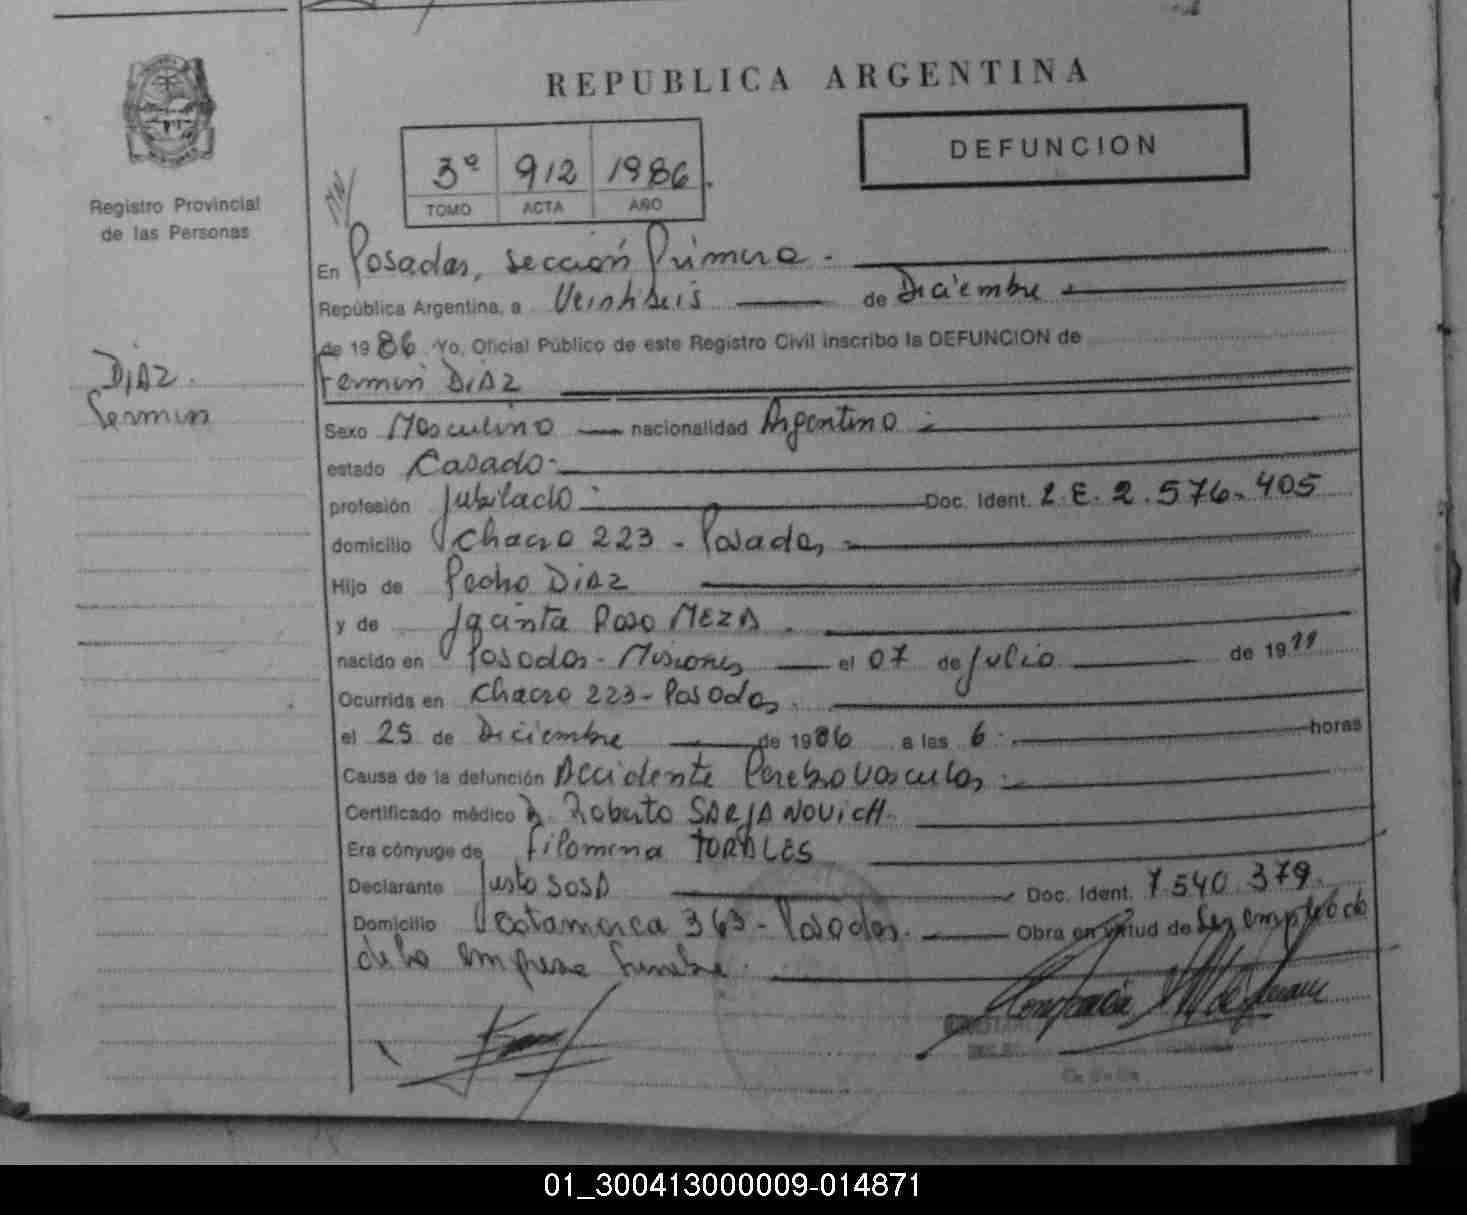 REPUBLICA ARGENTINA
DEFUNCION
3º 912 1986
TOMO ACTA AÑO
Registro Provincial
de las Personas
DIAZ.
Fermin
En Posadas, sección Primera.
República Argentina, a Veintiseis de Diciembre
de 1986 Yo, Oficial Público de este Registro Civil inscribo la DEFUNCION de
Fermin DIAZ
Sexo Masculino nacionalidad Argentino
estado Casado
profesión Jubilado Doc. Ident. L.E. 2.576.405
domicilio Chacra 223 - Posadas
Hijo de Pedro DIAZ
y de Jacinta Rosa MEZA
nacido en Posadas - Misiones el 07 de Julio de 1911
Ocurrida en Chacra 223 - Posadas
el 25 de Diciembre de 1986 a las 6 horas
Causa de la defunción Accidente Cerebrovascular
Certificado médico Dr. Roberto SARJANOVICH.
Era cónyuge de Filomena TORALES
Declarante Justo SOSA Doc. Ident. 7.540.379.
Domicilio Catamarca 363 - Posadas. Obra en virtud de Ser empleado
de la empresa funebre.
01_300413000009-014871